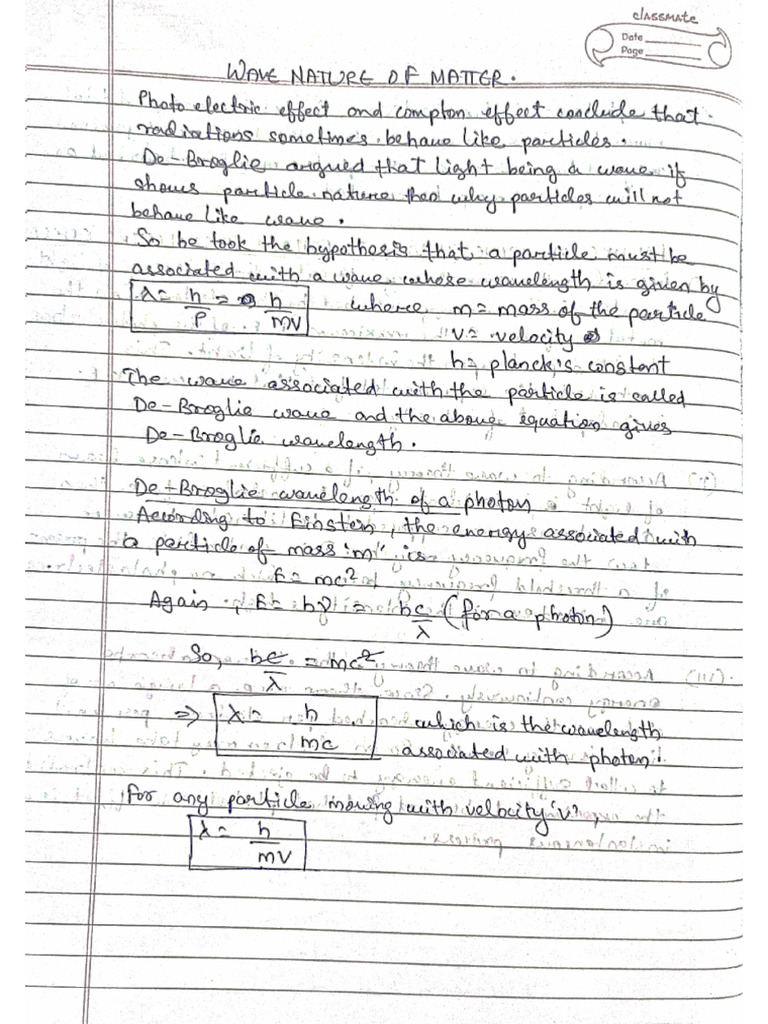 classmate
Date
Page
WAVE NATURE OF MATTER.
Photo electric effect and compton effect conclude that
radiations sometimes behave like particles.
De-Broglie argued that light being a wave if
shows particle nature then why particles will not
behave like wave.
So he took the hypothesis that a particle must be
associated with a wave whose wavelength is given by
λ = h/P = h/mv where m = mass of the particle
v = velocity
h = planck's constant
The wave associated with the particle is called
De-Broglie wave and the above equation gives
De-Broglie wavelength.
De-Broglie wavelength of a photon
According to Einstein, the energy associated with
a particle of mass "m" is
E = mc²
Again, E = hν = hc/λ (for a photon)
So, hc/λ = mc²
⇒ λ = h/mc which is the wavelength
associated with photon.
For any particle moving with velocity 'v',
λ = h/mv